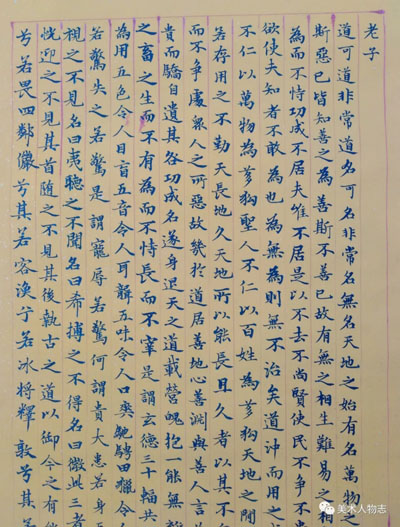 老子
道可道非常道名可名非常名無名天地之始有名萬物之
斯惡已皆知善之為善斯不善已故有無之相生難易之相
為而不恃功成不居夫唯不居是以不去不尚賢使民不爭不
欲使夫知者不敢為也為無為則無不治矣道沖而用之
不仁以萬物為芻狗聖人不仁以百姓為芻狗天地之間
若存用之不勤天長地久天地所以能長且久者以其不
而不爭處眾人之所惡故幾於道居善地心善淵與善人言
貴而驕自遺其咎功成名遂身退天之道載營魄抱一能無
之畜之生而不有為而不恃長而不宰是謂玄德三十輻共
為用五色令人目盲五音令人耳聾五味令人口爽馳騁田獵令
若驚失之若驚是謂寵辱若驚何謂貴大患若身
視之不見名曰夷聽之不聞名曰希搏之不得名曰微此三者
恍迎之不見其首隨之不見其後執古之道以御今之有
兮若畏四鄰儼兮其若客渙兮若冰將釋敦兮其若
美术人物志